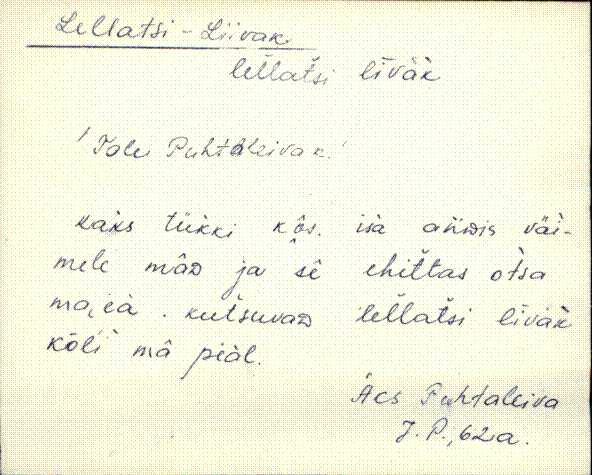 Lellatsi-Liivak
lèllatši līvàk
/Talu Puhtaleiva k./
kaks tükki kôs. isà añdis väi-
mele mâD ja sê ehìttas òtsa
majèà. kùtsuvaD lèllatši līvàk
kõlì mâ pèàl.
Äcs Puhtaleiva
J. P., 62 a.